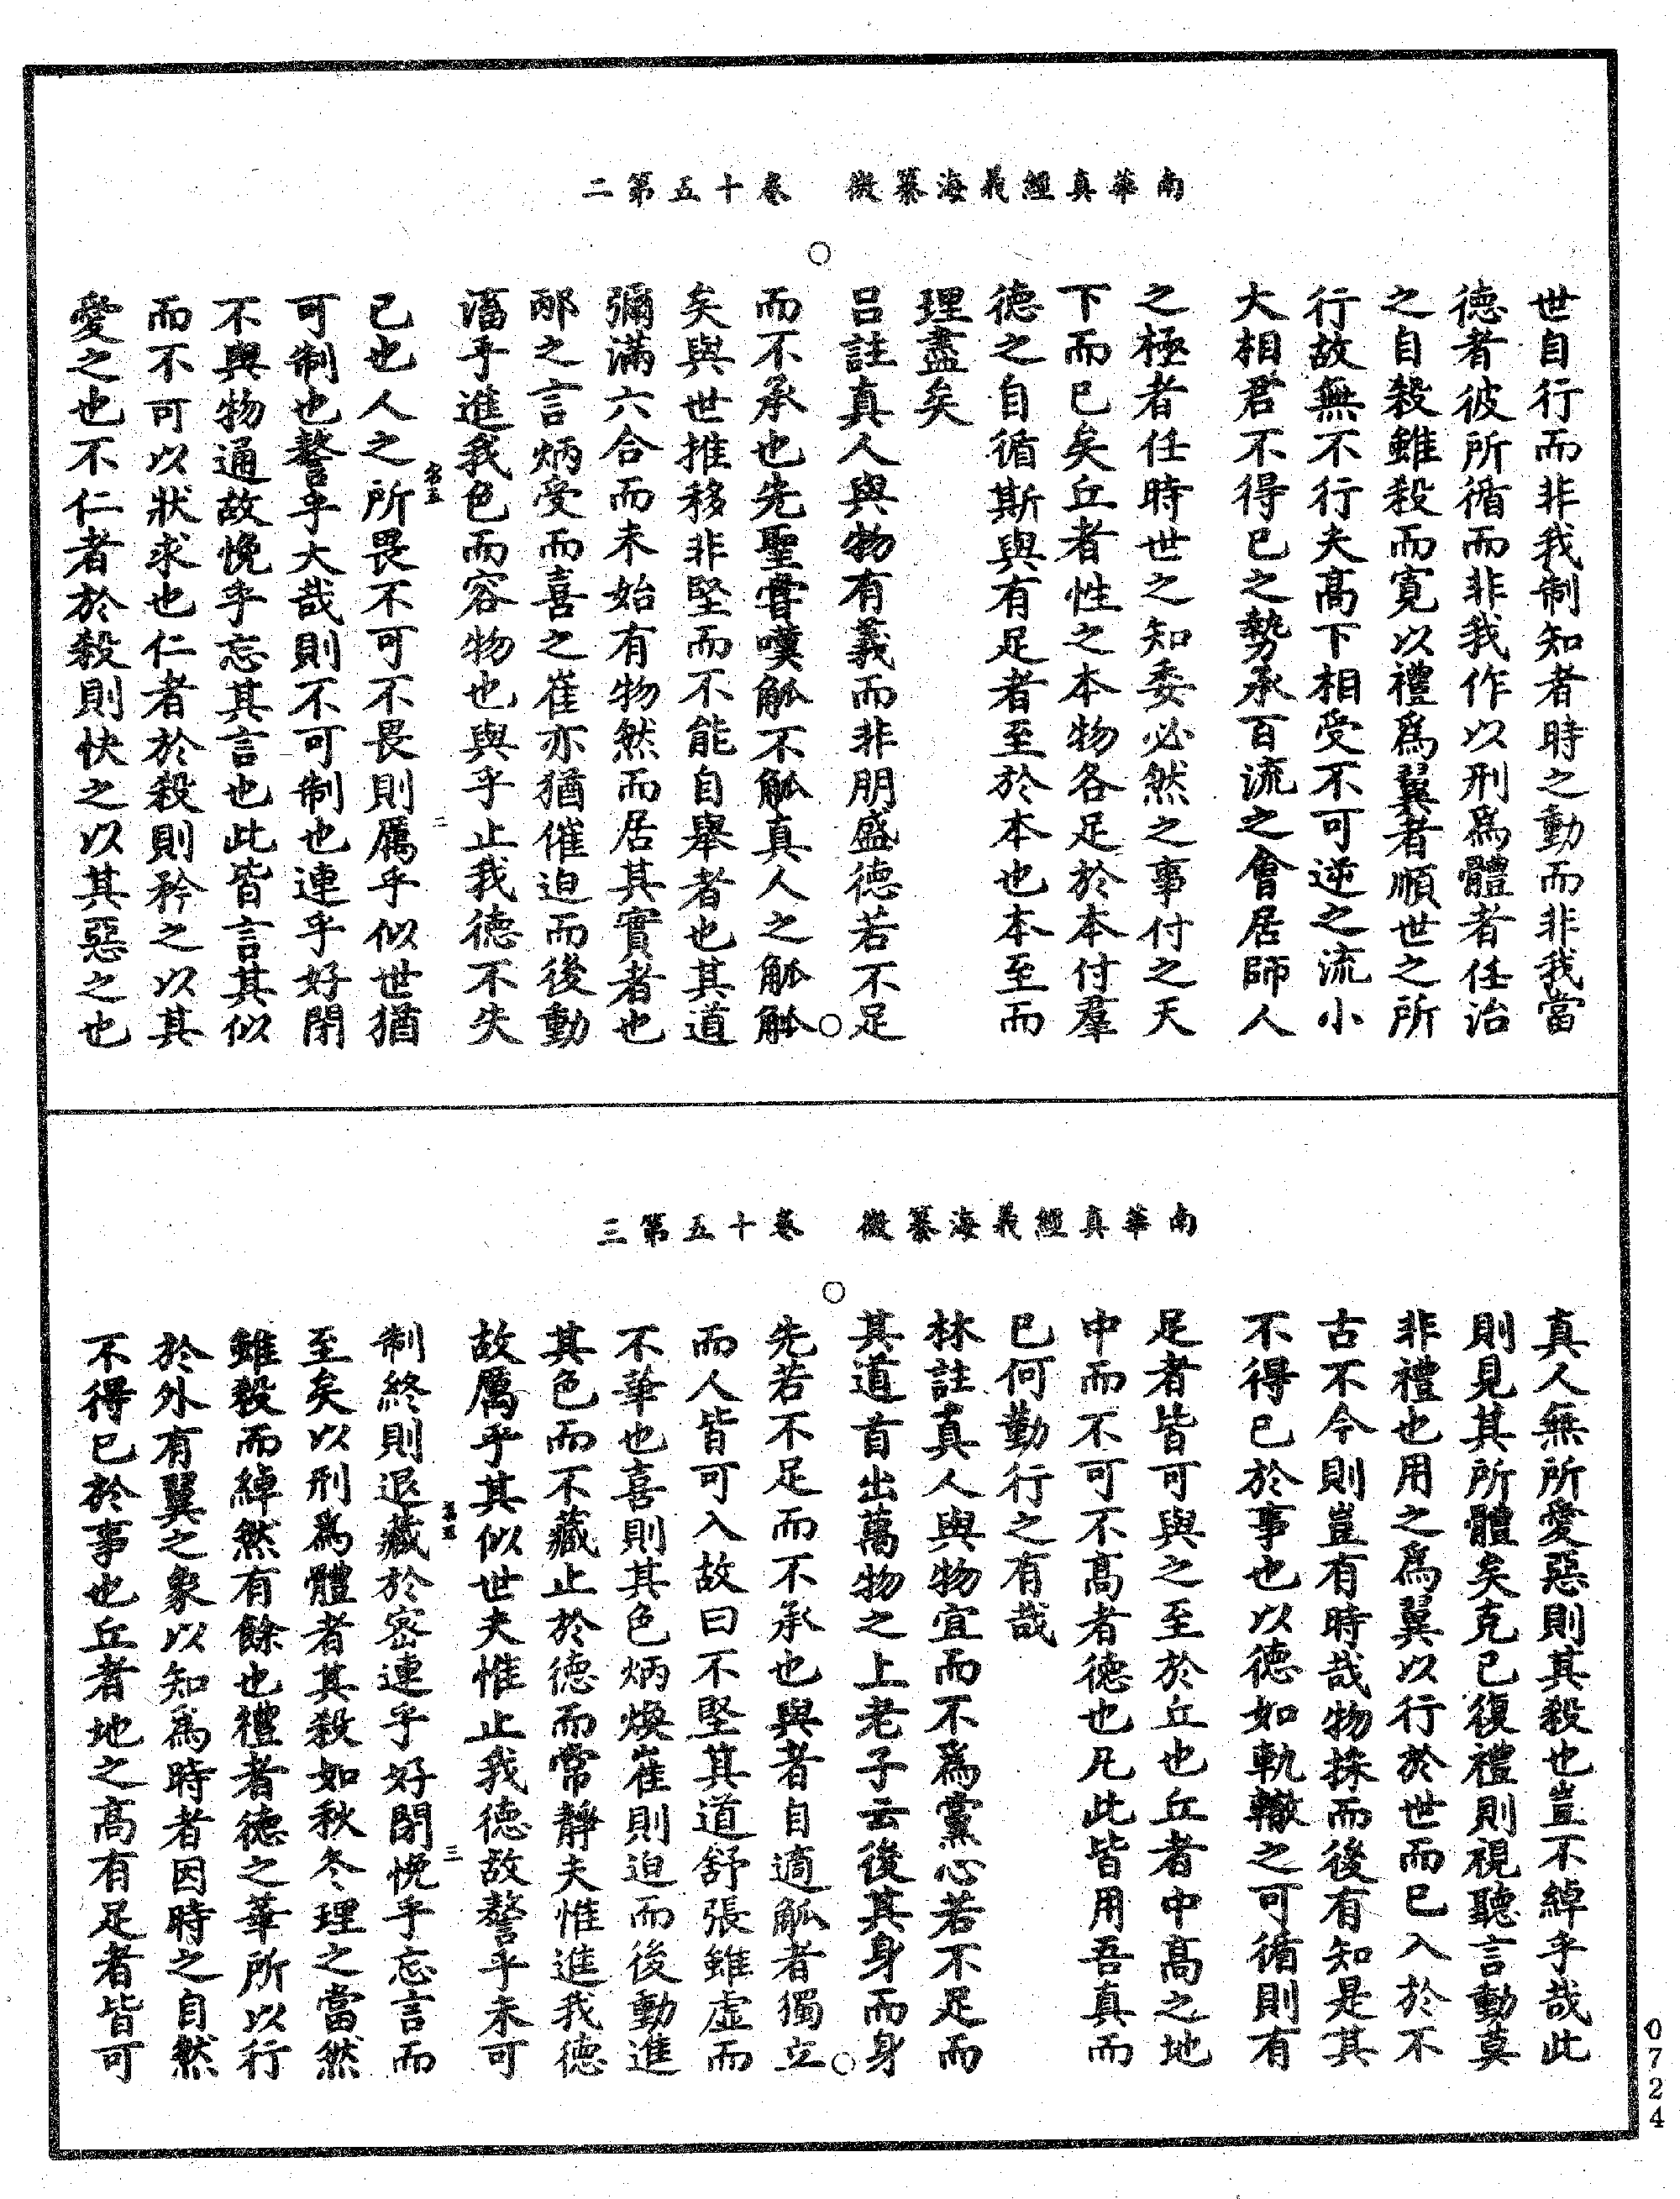 南華真經義海纂微　卷十五第二
世自行而非我制知者時之動而非我當
德者彼所循而非我作以刑為體者任治
之自殺雖殺而寬以禮為翼者順世之所
行故無不行夫高下相受不可逆之流小
大相君不得已之勢承百流之會居師人
之極者任時世之知委必然之事付之天
下而已矣丘者性之本物各足於本付羣
德之自循斯與有足者至於本也本至而
理盡矣
呂註真人與物有義而非朋盛德若不足
而不承也先聖嘗嘆觚不觚真人之觚觚
矣與世推移非堅而不能自舉者也其道
彌滿六合而未始有物然而居其實者也
邴之言炳受而喜之崔亦猶催迫而後動
滀乎進我色而容物也與乎止我德不失
已也人之所畏不可不畏則厲乎似世猶
可制也謷乎大哉則不可制也連乎好閉
不與物通故悗乎忘其言也此皆言其似
而不可以狀求也仁者於殺則矜之以其
愛之也不仁者於殺則快之以其惡之也
二
南華真經義海纂微　卷十五第三
真人無所愛惡則其殺也豈不綽乎哉此
則見其所體矣克已復禮則視聽言動莫
非禮也用之為翼以行於世而已入於不
古不今則豈有時哉物採而後有知是其
不得已於事也以德如軌轍之可循則有
足者皆可與之至於丘也丘者中高之地
中而不可不高者德也凡此皆用吾真而
已何勤行之有哉
林註真人與物宜而不為黨心若不足而
其道首出萬物之上老子云後其身而身
先若不足而不承也與者自適觚者獨立
而人皆可入故曰不堅其道舒張雖虛而
不華也喜則其色炳煥崔則迫而後動進
其色而不藏止於德而常靜夫惟進我德
故厲乎其似世夫惟止我德故謷乎未可
制終則退藏於密連乎好閉悗乎忘言而
至矣以刑為體者其殺如秋冬理之當然
雖殺而綽然有餘也禮者德之華所以行
於外有翼之象以知為時者因時之自然
不得已於事也丘者地之高有足者皆可
三
0724